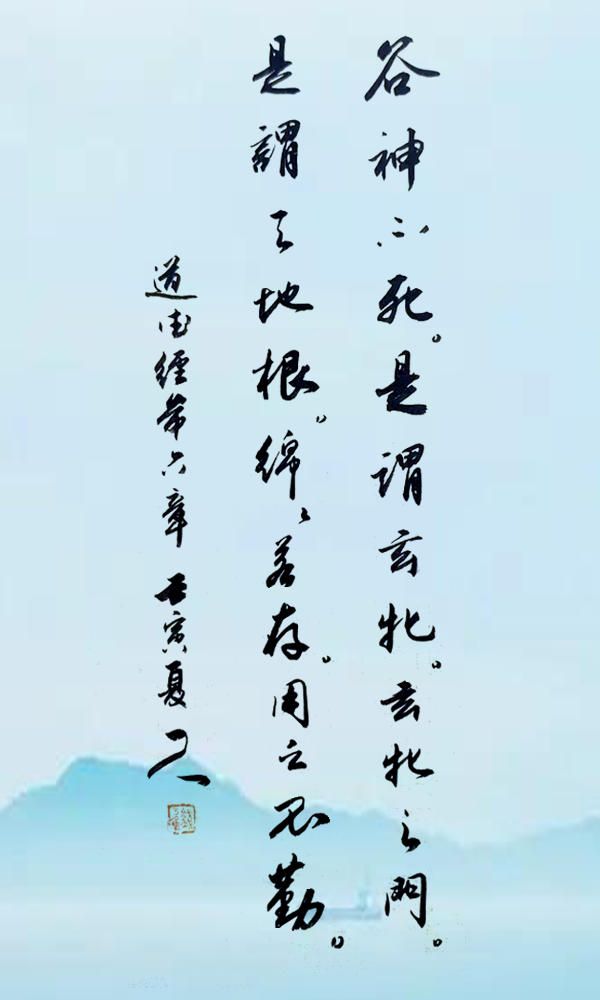 谷神不死。是謂玄牝。玄牝之門。
是謂天地根。綿々若存。用之不勤。
道德經第六章 壬寅夏